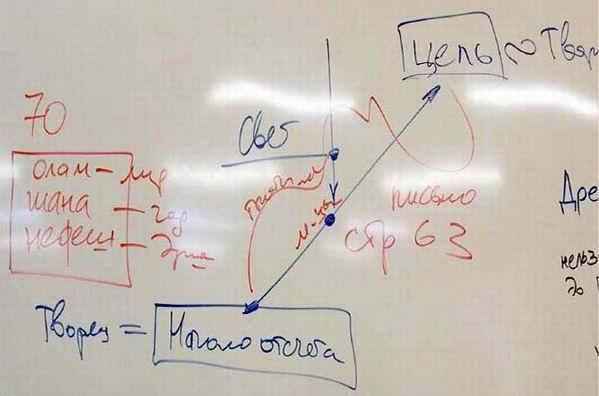 Цель ~ Твор
70
Свет
олам – мир
шана – год
нефеш – душа
письмо
стр 63
Дре
нельз
Творец = Начало отсчета